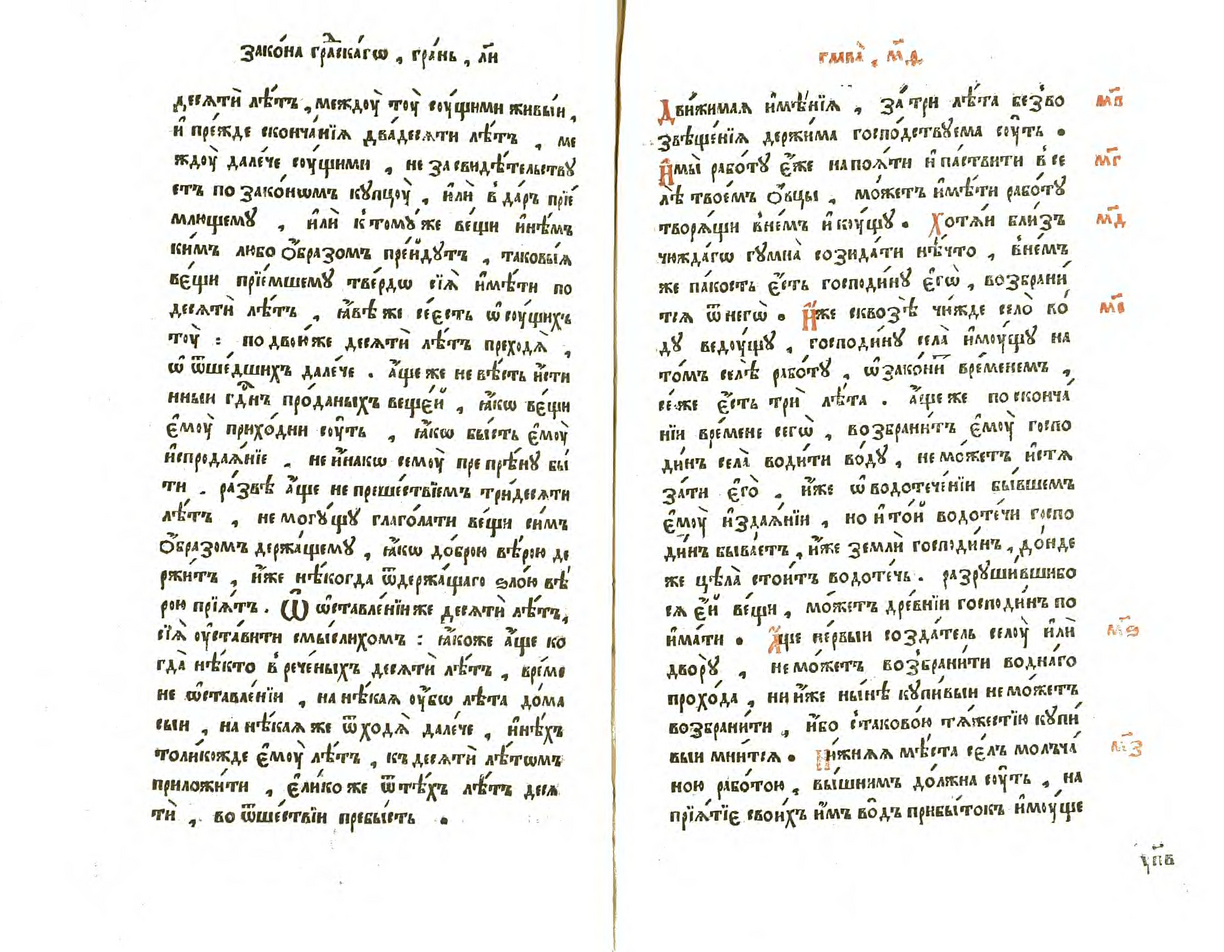 Зако́на гра́дскагѡ , гра́нь , л҃и
десѧтѝ лѣ́тъ , междоу̀ тоу̀ соу́щими живы́и ,
и҆ пре́жде сконча́нїѧ два́десѧти лѣ́тъ , ме
ждоу̀ дале́че соу́щими , не засвидѣ́тельству
етъ по зако́нѡмъ купцоу̀ , и҆лѝ в да́ръ прїе́
млющему , и҆лѝ к томꙋ́же ве́щи и҆нѣ́мъ
ки́мъ либо ѻ҆́бразомъ пре́йдутъ , таковы́ѧ
ве́щи прїе́мшему тве́рдѡ сїѧ̀ и҆мѣ́ти по
десѧти лѣ́тъ , ꙗ҆́вѣ же се́ есть ѡ҆ соу́щихъ
тоу̀ : по двою́же десѧти лѣ́тъ преходѧ̀ ,
ѡ҆ ѿше́дшихъ дале́че . а҆́ще же не вѣ́сть и҆́сти
нныи гдⷭ҇нъ про́даныхъ веще́й , ꙗ҆́кѡ ве́щи
є҆моу̀ прихо́дни соу́ть , ꙗ҆́кѡ бы́сть є҆моу̀
и҆спродаѧ́нїе , не и҆на́кѡ семоу̀ препрѣ́ну бы́
ти . ра́звѣ а҆́ще не преше́ствїемъ три́десѧти
лѣ́тъ , не могу́щу глаго́лати ве́щи си́мъ
ѻ҆́бразомъ держа́щему , ꙗ҆́кѡ до́брою вѣ́рою де
ржи́тъ , и҆́же нѣ́когда ѿ держа́щаго ѕло́ю вѣ́
рою прїѧ́тъ . Ѿ ѡ҆ставле́нїи же десѧти лѣ́тъ,
сїѧ̀ оу҆ста́вити смы́слихомъ : ꙗ҆́коже а҆́ще ко
гда̀ нѣ́кто в рече́ныхъ десѧти лѣ́тъ , вре́ме
не ѡ҆ставле́нїи , на нѣ́каѧ оу҆́бѡ лѣ́та до́ма
сыи , на нѣ́каѧ же ѿходѧ̀ дале́че , и҆нѣ́хъ
толи́кожде є҆моу̀ лѣ́тъ , къ десѧти лѣ́тѡмъ
приложи́ти , є҆ли́ко же ѿ тѣ́хъ лѣ́тъ десѧ
тѝ , во ѿше́ствїи пребы́сть .
глава̀ , м҃д
Дви́жимаѧ и҆мѣ́нїѧ , за́ три лѣ́та безво
м҃в
звѣще́нїѧ держи́ма госпо́дствуема соу́ть .
И҆мы́и рабо́ту є҆́же напоѧ́ти и҆ паствити в се
м҃г
лѣ̀ твое́мъ ѻ҆́вцы , мо́жетъ и҆мѣ́ти рабо́ту
творѧ́щи в не́мъ и҆ коу́щу . Хотѧ́и бли́зъ
м҃д
чю́ждагѡ гумна̀ созида́ти нѣ́что , в не́мъ
же па́кость є҆́сть господи́ну є҆гѡ̀ , возбрани́
тсѧ ѿ негѡ̀ . И҆́же сквозѣ̀ чю́жде село̀ во́
м҃е
ду ведоу́щу , господи́ну села̀ и҆моу́щу на
то́мъ селѣ̀ рабо́ту , ѡ҆закони́ вре́менемъ ,
се́ же є҆́сть трѝ лѣ́та . а҆́ще же по сконча́
нїи вре́мене сегѡ̀ , возбрани́тъ є҆моу̀ госпо
ди́нъ села̀ води́ти во́ду , не мо́жетъ и҆стѧ
за́ти є҆го̀ , и҆́же ѡ҆ водотече́нїи бы́вшемъ
є҆моу̀ и҆здаѧ́нїи , но и҆ то́й водоте́чи госпо
ди́нъ быва́етъ , и҆́же землѝ господи́нъ , до́нде
же цѣла̀ стои́тъ водоте́чь . разруши́вшибо
сѧ є҆́й ве́щи , мо́жетъ дре́внїи господи́нъ по
и҆ма́ти . А҆́ще пе́рвыи созда́тель селоу̀ и҆лѝ
м҃ѕ
двору̀ , не мо́жетъ возбрани́ти во́днаго
прохо́да , ни и҆́же ны́нѣ купи́выи не мо́жетъ
возбрани́ти , и҆́бо с таково́ю тѧ́жестїю купи́
выи мни́тсѧ . Ни́жнѧѧ мѣ́ста се́лъ молъча́
м҃з
ною рабо́тою , вы́шнимъ до́лжна соу́ть , на
прїѧ́тїе свои́хъ и҆́мъ во́дъ прибы́токъ и҆моу́ще
у҃пв